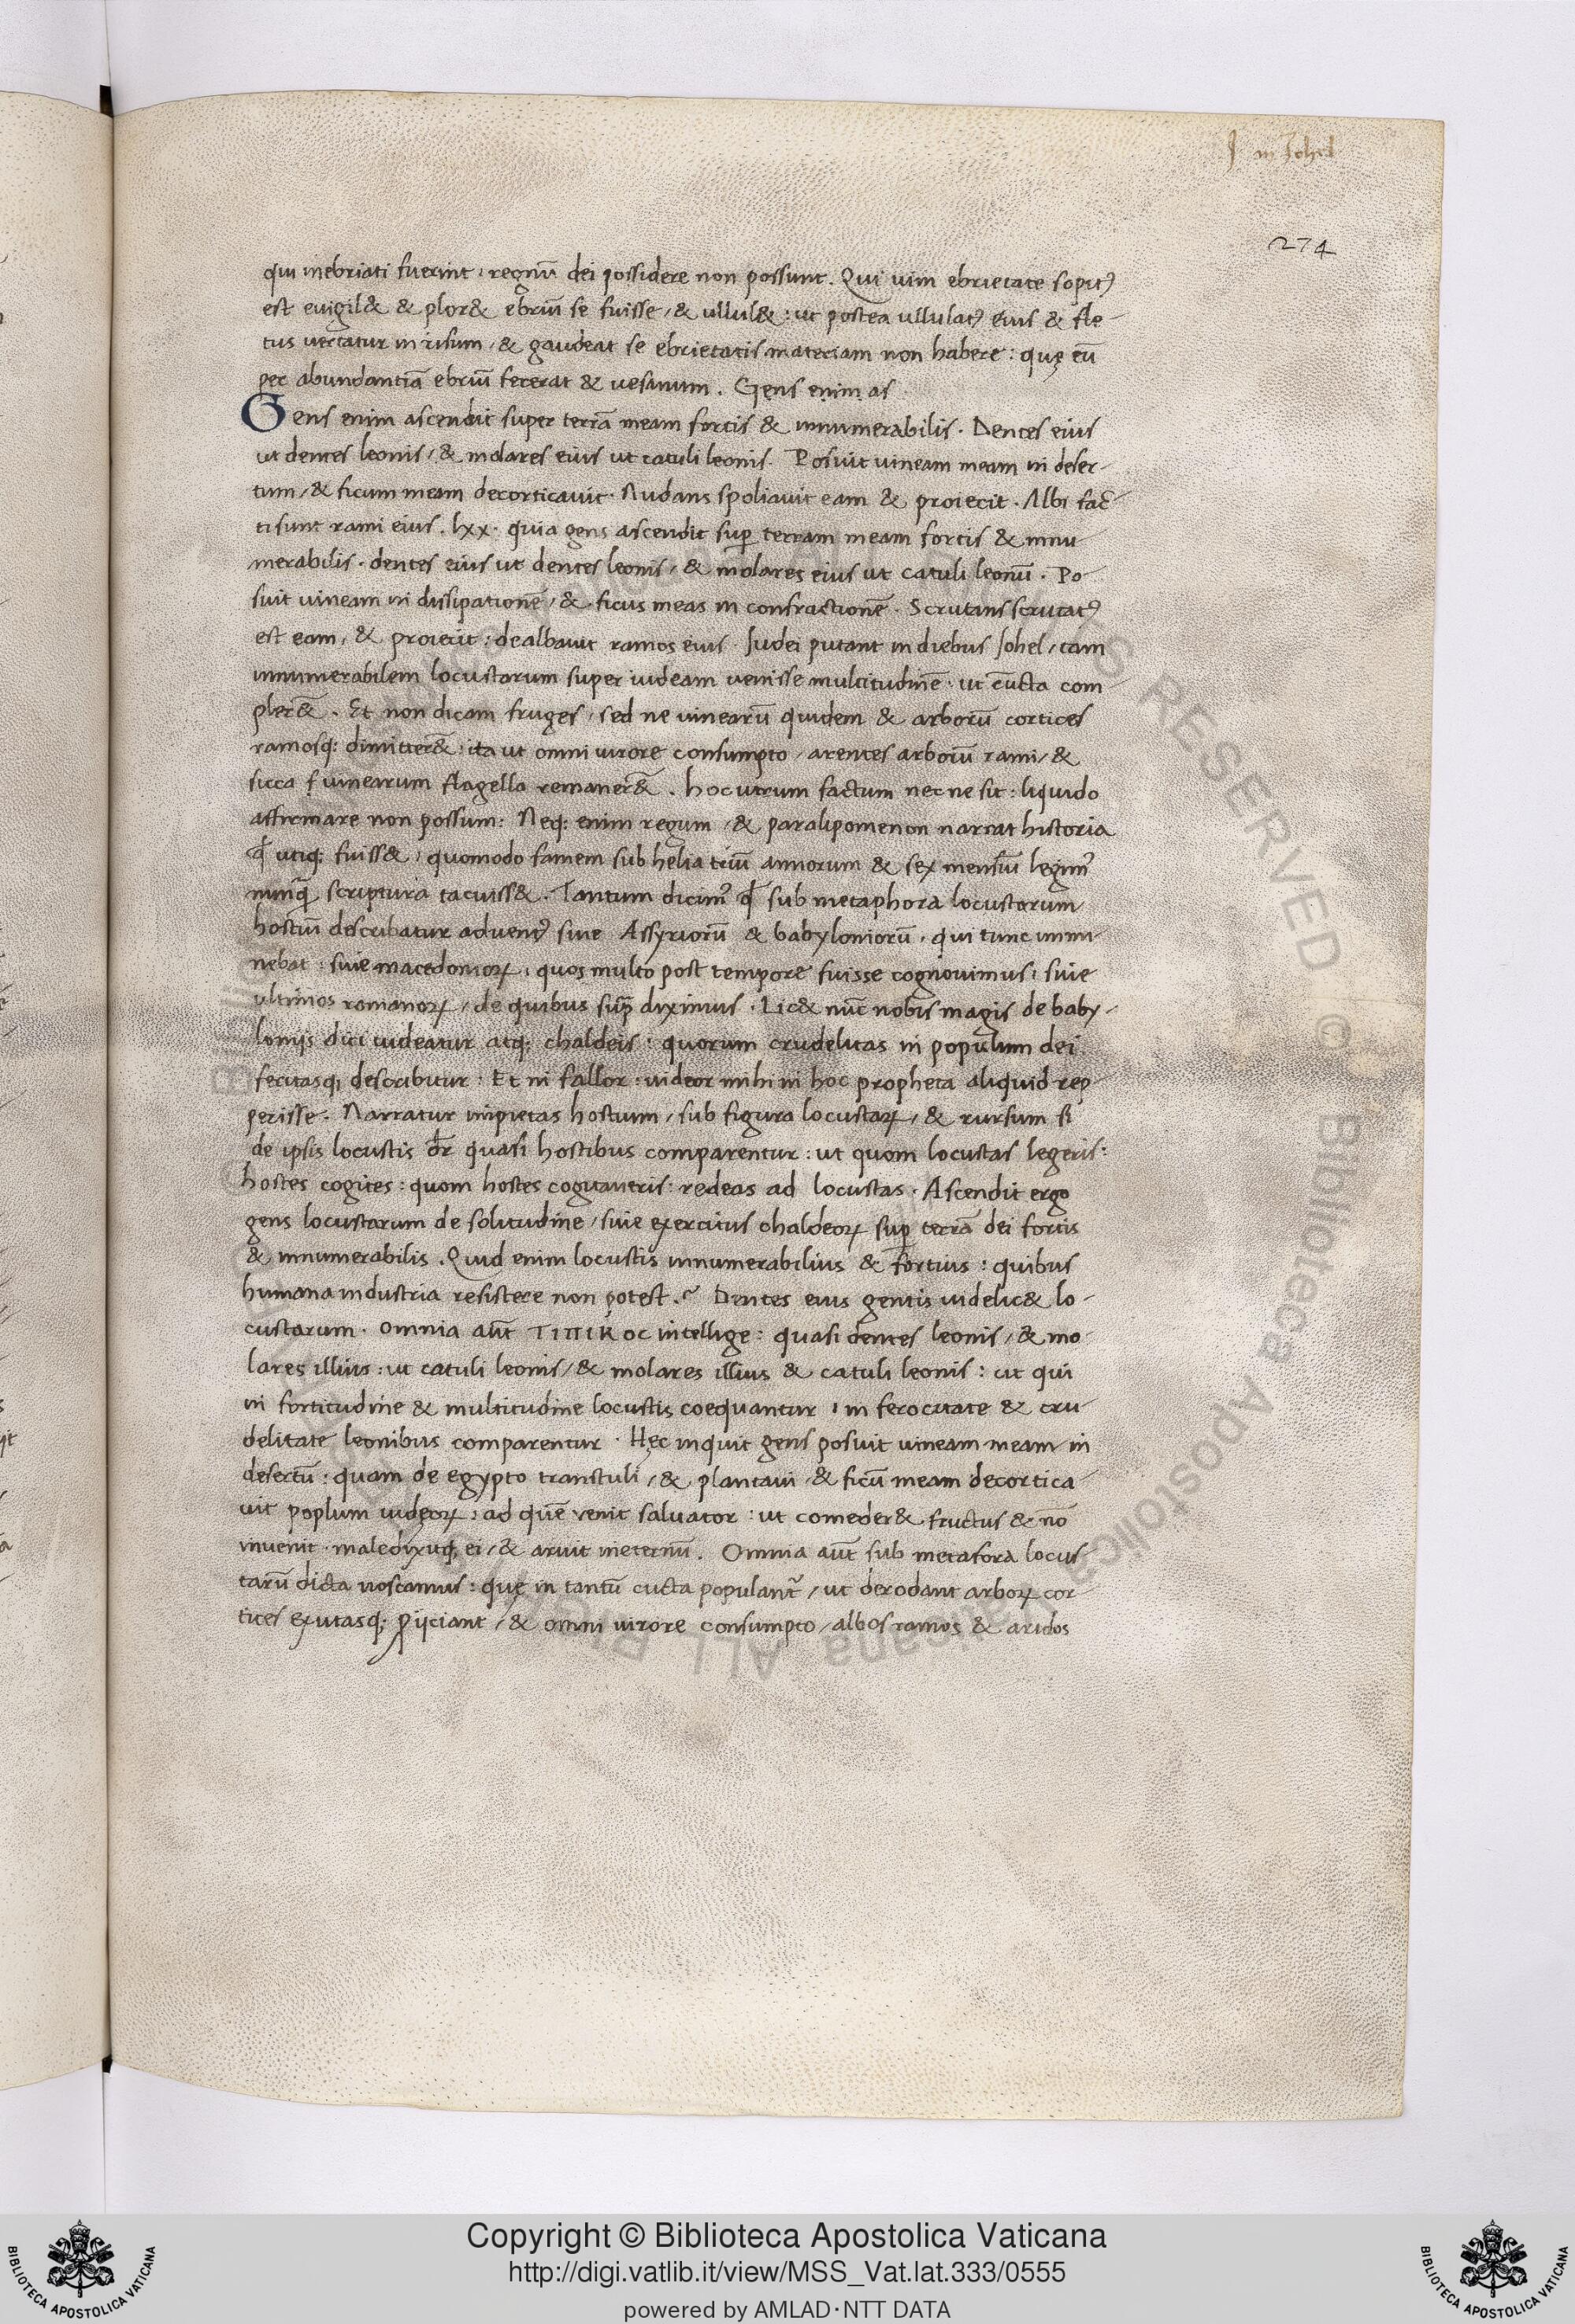 I in Johel
274
qui inebriati fuerint: regnū dei possidere non possunt. Qui uini ebrietate sopitꝰ
est euigil& & plor& ebriū se fuisse, & ullul&: ut postea ullulatꝰ eius & fle-
tus uertatur in risum, & gaudeat se ebrietatis materiam non habere: quę eū
per abundantiā ebriū fecerat & uesanum. Gens enim as
Gens enim ascendit super terrā meam fortis & innumerabilis. Dentes eius
ut dentes leonis, & molares eius ut catuli leonis. Posuit uineam meam in deser-
tum, & ficum meam decorticauit. Nudans spoliauit eam & proiecit. Albi fac-
ti sunt rami eius. lxx. quia gens ascendit suꝑ terram meam fortis & innu-
merabilis. dentes eius ut dentes leonis, & molares eius ut catuli leonū. Po-
suit uineam in dissipationē, & ficus meas in confractionē. Scrutans scrutatꝰ
est eam, & proiecit: dealbauit ramos eius. Judei putant in diebus Johel, tam
innumerabilem locustarum super iudeam uenisse multitudinē. ut cūcta com-
pler&̄. Et non dicam fruges, sed ne uinearū quidem & arborū cortices
ramosq; dimitter&̄: ita ut omni uirore consumpto, arentes arborū rami, &
sicca uinearum flagella remaner&̄. hoc utrum factum nec ne sit: liquido
affirmare non possum: Neq; enim regum, & paralipomenon narrat historia
qđ utiq; fuiss&, quomodo famem sub helia triū annorum & sex mensiū legimꝰ
nunq̄ scriptura tacuiss&. Tantum dicimꝰ qđ sub metaphora locustarum
hostiū describatur aduentꝰ siue Assyriorū & babyloniorū, qui tunc immi-
nebat: siue macedonioꝝ, quos multo post tempore fuisse cognouimus: siue
ultimos romanoꝝ, de quibus sup̄ diximus. Lic& nūc nobis magis de baby-
loniis dici uideatur atq; chaldeis: quorum crudelitas in populum dei
fecitasq; describitur: Et ni fallor: uideor mihi in hoc propheta aliquid rep-
perisse. Narratur impietas hostium, sub figura locustaꝝ, & rursum si
de ipsis locustis dr̄ quasi hostibus comparentur: ut quom locustas legeris:
hostes cogites: quom hostes cogitaueris: redeas ad locustas. Ascendit ergo
gens locustarum de solitudine, siue exercitus chaldeoꝝ suꝑ terrā dei fortis
& innumerabilis. Quid enim locustis innumerabilius & fortius: quibus
humana industria resistere non potest.? Dentes eius gentis uidelic& lo-
custarum. Omnia aūt ΤΙΠΙΚ ΟC intellige: quasi dentes leonis, & mo-
lares illius: ut catuli leonis, & molares illius & catuli leonis: ut qui
in fortitudine & multitudine locustis coequantur, in ferocitate & cru-
delitate leonibus comparentur. Hęc inquit gens posuit uineam meam in
desertū: quam de egypto transtuli, & plantaui & ficū meam decortica-
uit poplum iudeoꝝ: ad quē uenit saluator: ut comeder& fructus & nō
inuenit. maledixitq; ei, & aruit ineternū. Omnia aūt sub metafora locus
tarū dicta noscamus: quę in tantū cūcta populant̄, ut derodant arboꝝ cor-
tices exutasq; ꝓiiciant, & omni uirore consumpto, albos ramos & aridos
Copyright © Biblioteca Apostolica Vaticana
http://digi.vatlib.it/view/MSS_Vat.lat.333/0555
powered by AMLAD·NTT DATA